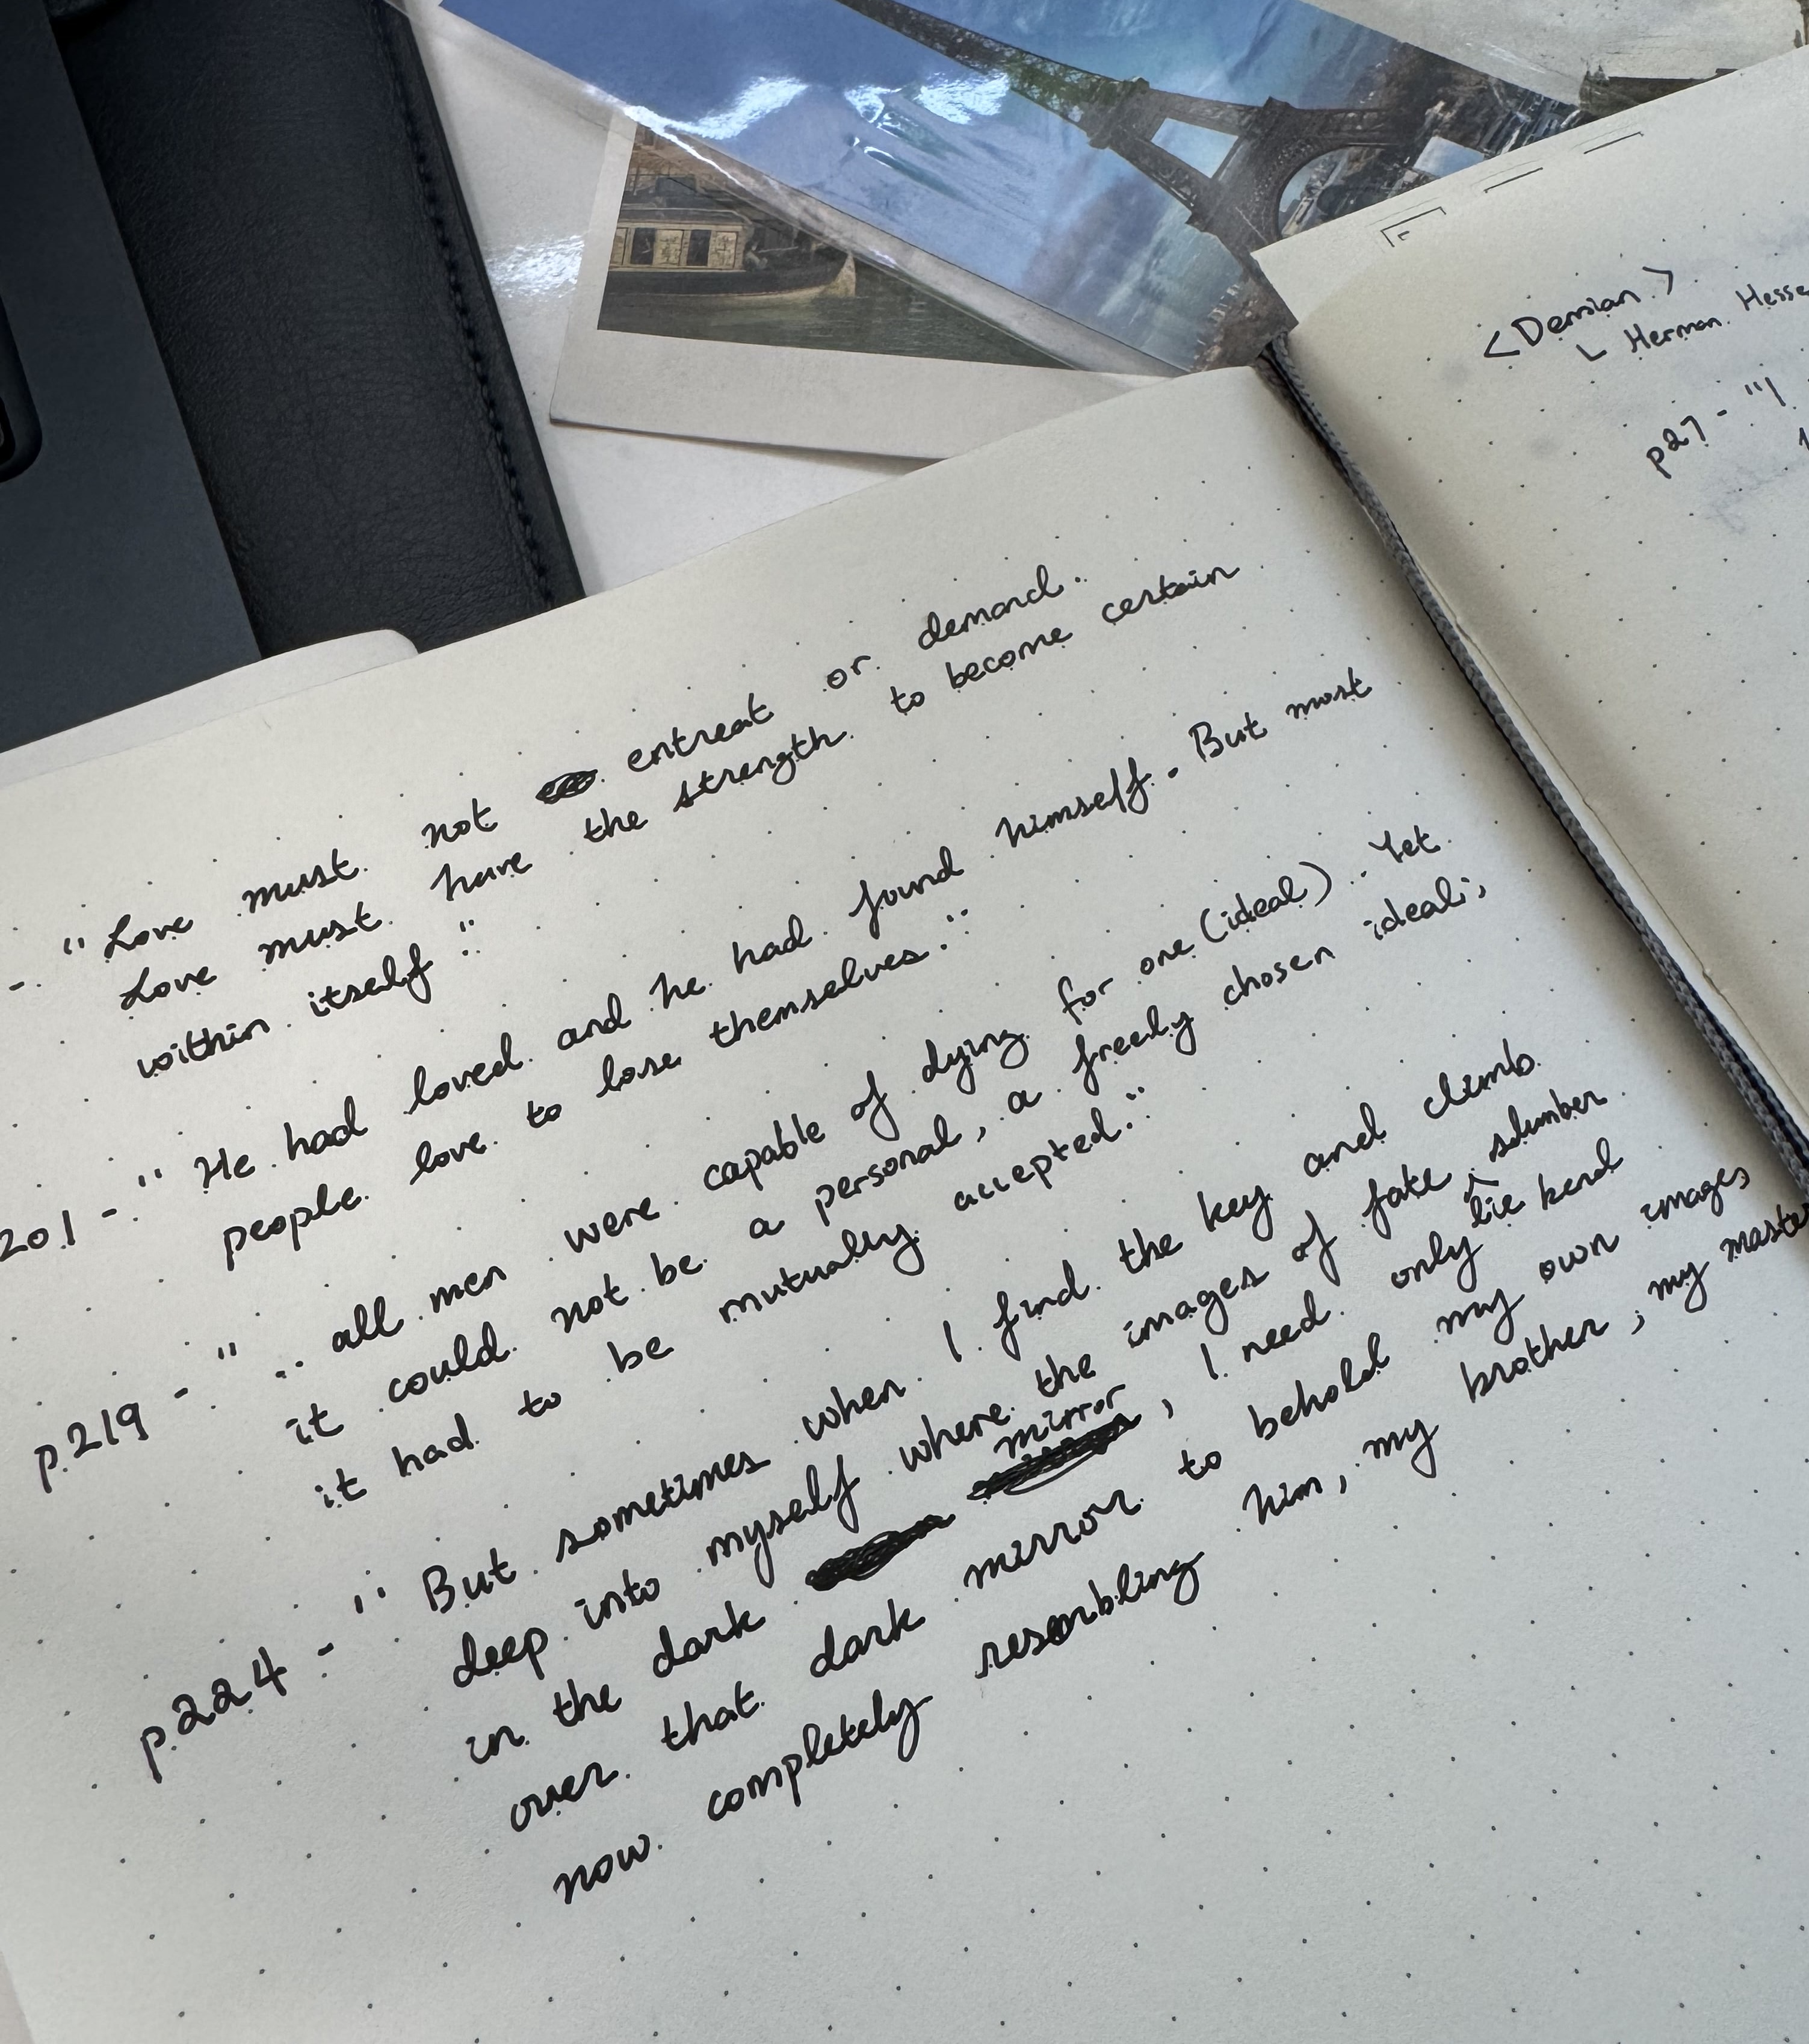 - "Love must not entreat or demand.
Love must have the strength to become certain
within itself."
201 - "He had loved and he had found himself. But most
people love to lose themselves."
p.219 - ".. all men were capable of dying for one (ideal). Yet
it could not be a personal, a freely chosen ideal;
it had to be mutually accepted."
p.224 - "But sometimes when I find the key and climb
deep into myself where the images of fate slumber
in the dark mirror, I need only lie bend
over that dark mirror to behold my own images
now completely resembling him, my brother, my master
<Demian>
Herman Hesse
p27 - "I